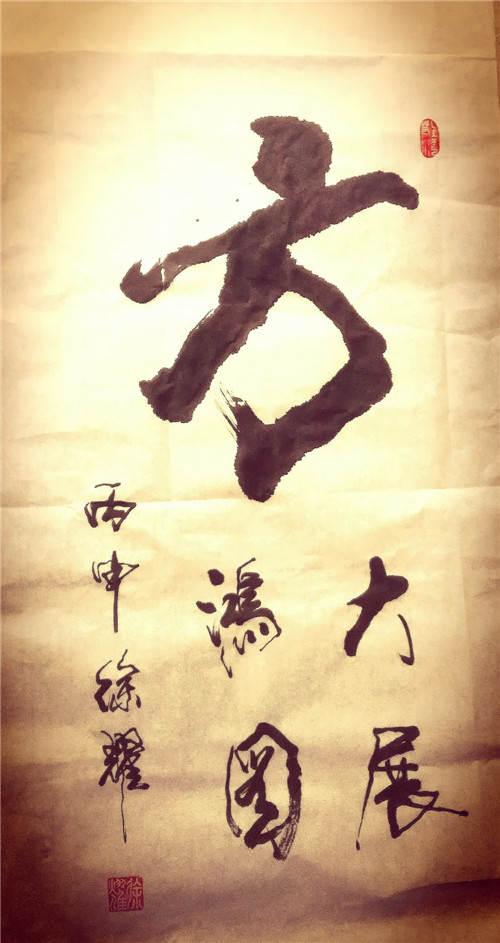 方
大展
鸿图
丙申徐耀
徐耀